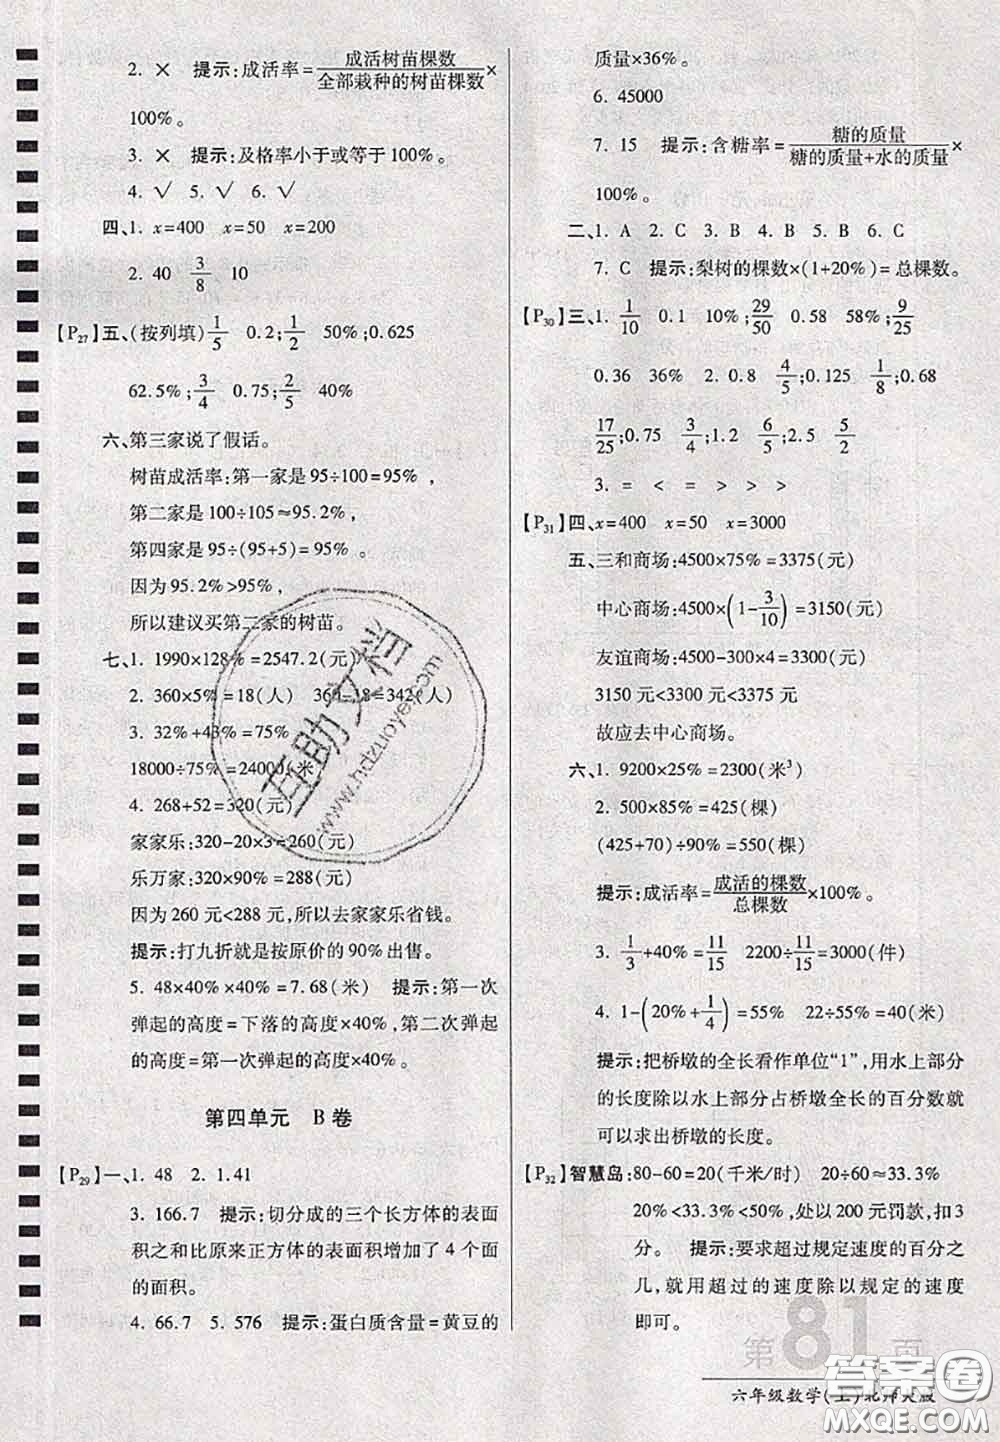 2. × 提示:成活率=成活树苗棵数/全部栽种的树苗棵数×
100%。
3. × 提示:及格率小于或等于100%。
4. √ 5. √ 6. √
四、1. x=400 x=50 x=200
2. 40 3/8 10
【P27】五、(按列填)1/5 0.2;1/2 50%;0.625
62.5%;3/4 0.75;2/5 40%
六、第三家说了假话。
树苗成活率:第一家是95÷100=95%,
第二家是100÷105≈95.2%,
第四家是95÷(95+5)=95%。
因为95.2%>95%,
所以建议买第二家的树苗。
七、1. 1990×128%=2547.2(元)
2. 360×5%=18(人) 360-18=342(人)
3. 32%+43%=75%
18000÷75%=24000(米)
4. 268+52=320(元)
家家乐:320-20×3=260(元)
乐万家:320×90%=288(元)
因为260元<288元,所以去家家乐省钱。
提示:打九折就是按原价的90%出售。
5. 48×40%×40%=7.68(米) 提示:第一次
弹起的高度=下落的高度×40%,第二次弹起
的高度=第一次弹起的高度×40%。
第四单元 B卷
【P29】一、1. 48 2. 1.41
3. 166.7 提示:切分成的三个长方体的表面
积之和比原来正方体的表面积增加了4个面
的面积。
4. 66.7 5. 576 提示:蛋白质含量=黄豆的
质量×36%。
6. 45000
7. 15 提示:含糖率=糖的质量/糖的质量+水的质量×
100%。
二、1. A 2. C 3. B 4. B 5. B 6. C
7. C 提示:梨树的棵数×(1+20%)=总棵数。
【P30】三、1. 1/10 0.1 10%;29/50 0.58 58%;9/25
0.36 36% 2. 0.8 4/5;0.125 1/8;0.68
17/25;0.75 3/4;1.2 6/5;2.5 5/2
3. = < = > > >
【P31】四、x=400 x=50 x=3000
五、三和商场:4500×75%=3375(元)
中心商场:4500×(1-3/10)=3150(元)
友谊商场:4500-300×4=3300(元)
3150元<3300元<3375元
故应去中心商场。
六、1. 9200×25%=2300(米³)
2. 500×85%=425(棵)
(425+70)÷90%=550(棵)
提示:成活率=成活的棵数/总棵数×100%。
3. 1/3+40%=11/15 2200÷11/15=3000(件)
4. 1-(20%+1/4)=55% 22÷55%=40(米)
提示:把桥墩的全长看作单位“1”,用水上部分
的长度除以水上部分占桥墩全长的百分数就
可以求出桥墩的长度。
【P32】智慧岛:80-60=20(千米/时) 20÷60≈33.3%
20%<33.3%<50%,处以200元罚款,扣3
分。 提示:要求超过规定速度的百分之
几,就用超过的速度除以规定的速度
即可。
第81页
六年级数学(上)北师大版
互助文档
www.hdzuoye.com
答案卷
MXQE.COM